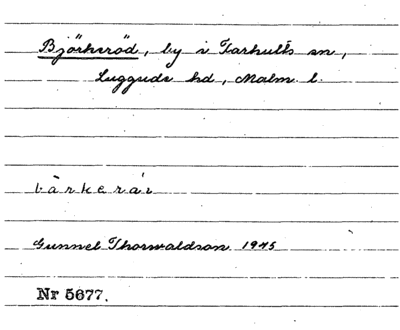 Björkeröd, by i Farhults sn,
Luggude hd, Malm. l.
Gunnel Thorwaldson 1945
Nr 5677.